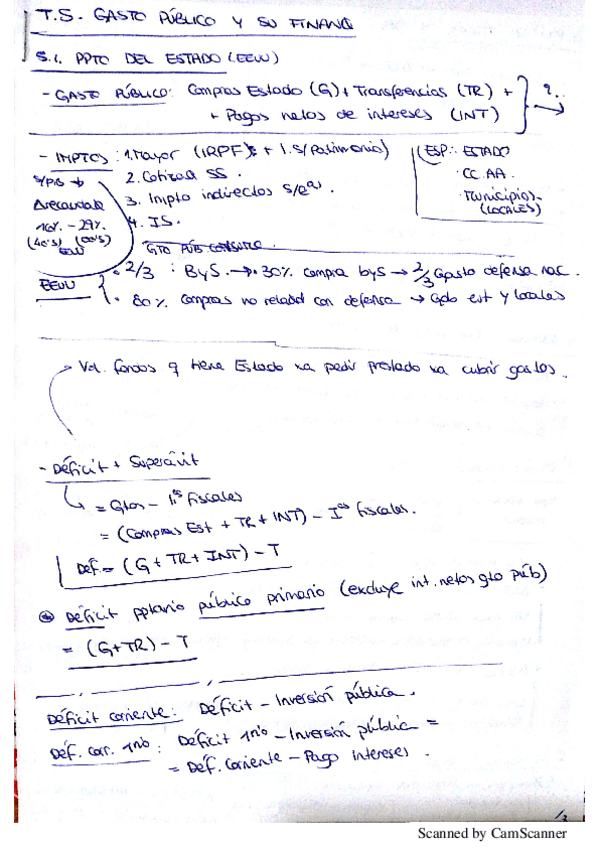 T.5. GASTO PÚBLICO Y SU FINANC
5.1. PPTO DEL ESTADO (EEUU)
- GASTO PÚBLICO: Compras Estado (G) + Transferencias (TR) +
+ Pagos netos de intereses (INT)
?..
- IMPTOS: 1. Mayor (IRPF) + I. S/Patrimonio)
2. Cotizac SS.
3. Impto indirectos
4. IS.
S/PIB
Δ recaudado
16%. - 29%.
(40's) (00's)
EEUU
(ESP.: ESTADO
· CC.AA.
· Municipios.
(LOCALES)
GTO PÚB CONSUMO.
EEUU
· 2/3 : ByS. → 30% compra byS → 2/3 Gasto defensa nac.
· 80% compras no relacd con defensa → Gdo est y locales
Vol. fondos q tiene Estado xa pedir prestado xa cubrir gastos.
- Déficit + Superávit
= Gtos - Iºs fiscales
= (Compras Est + TR + INT) - Iºs fiscales.
Def. = (G + TR + INT) - T
Déficit pptario público primario (excluye int. netos gto púb)
= (G+TR) - T
Déficit corriente: Déficit - Inversión pública.
Def. corr. 1rio: Déficit 1rio - Inversión pública =
= Def. Corriente - Pago intereses.
Scanned by CamScanner